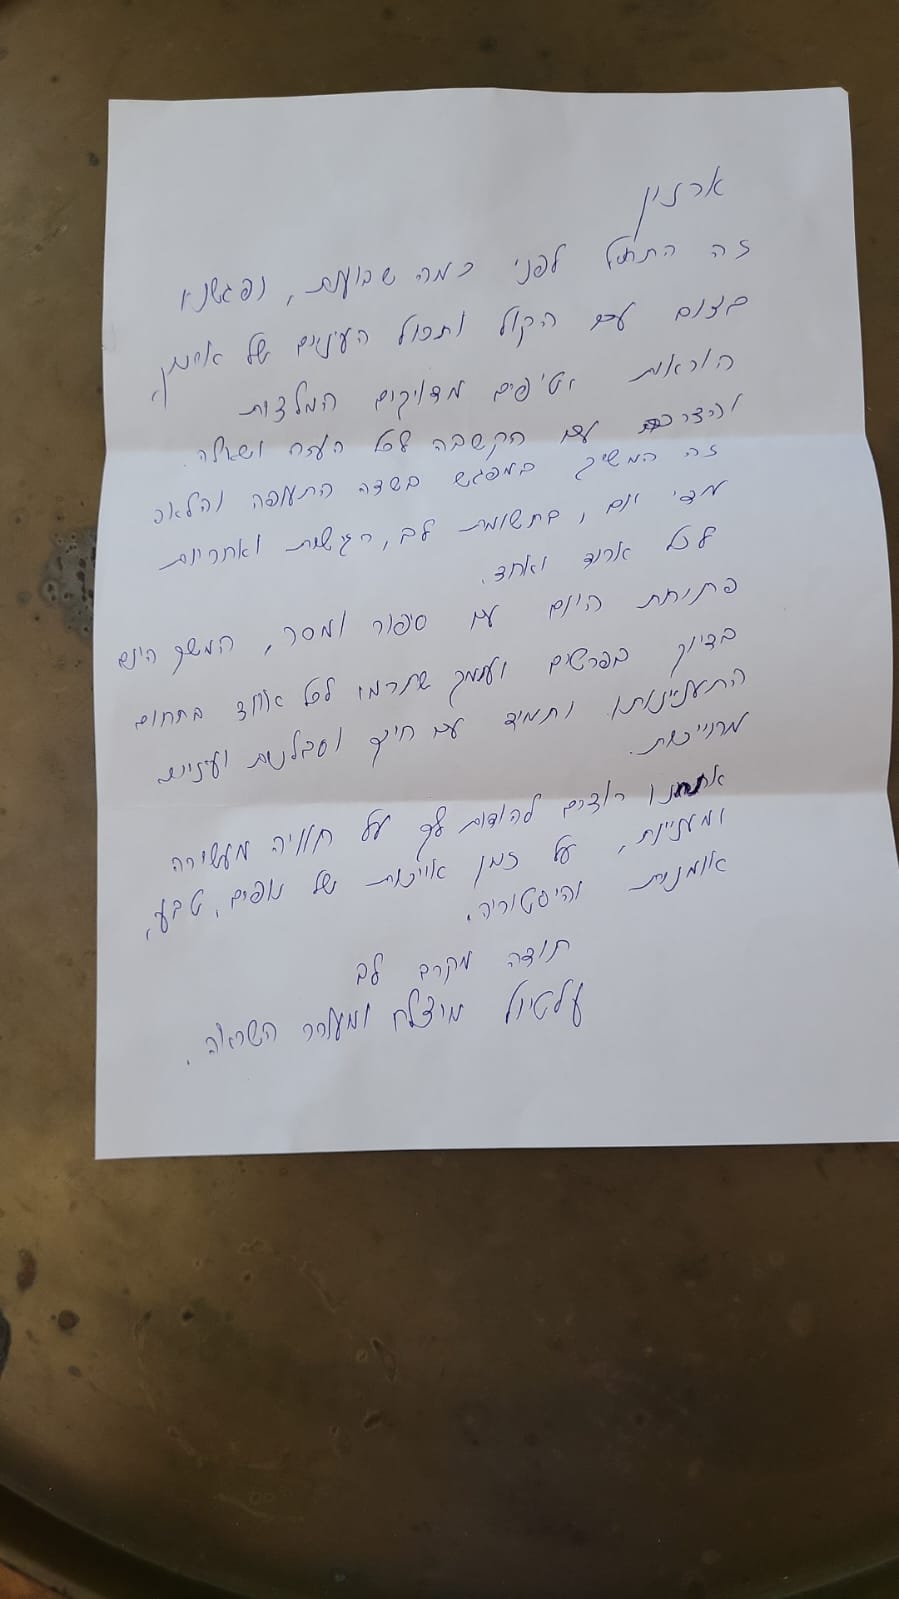 זה התחיל לפני כמה שבועות, ופגשנו
בזום עם הקול ותכול העיניים של
הוראות וטיפים מדויקים המלצות
עם הקשבה לכל הערה ושאלה.
זה המשיך במפגש בשדה התעופה והלאה
מדי יום, בתשומת לב, רגישות ואחריות
לכל אחד ואחד.
פתיחת היום עם סיפור ומסר, המשך היום
בדיוק בפרטים ועומק שתרמו לכל אחד בתחום
התעניינותו ותמיד עם חיוך וסבלנות ועיניים
מחייכות.
אנחנו רוצים להודות לך על חוויה מעשירה
ומעניינת, על זמן איכות של נופים, טבע,
אומנות והיסטוריה.
תודה מקרב לב
על טיול מוצלח ומעורר השראה.